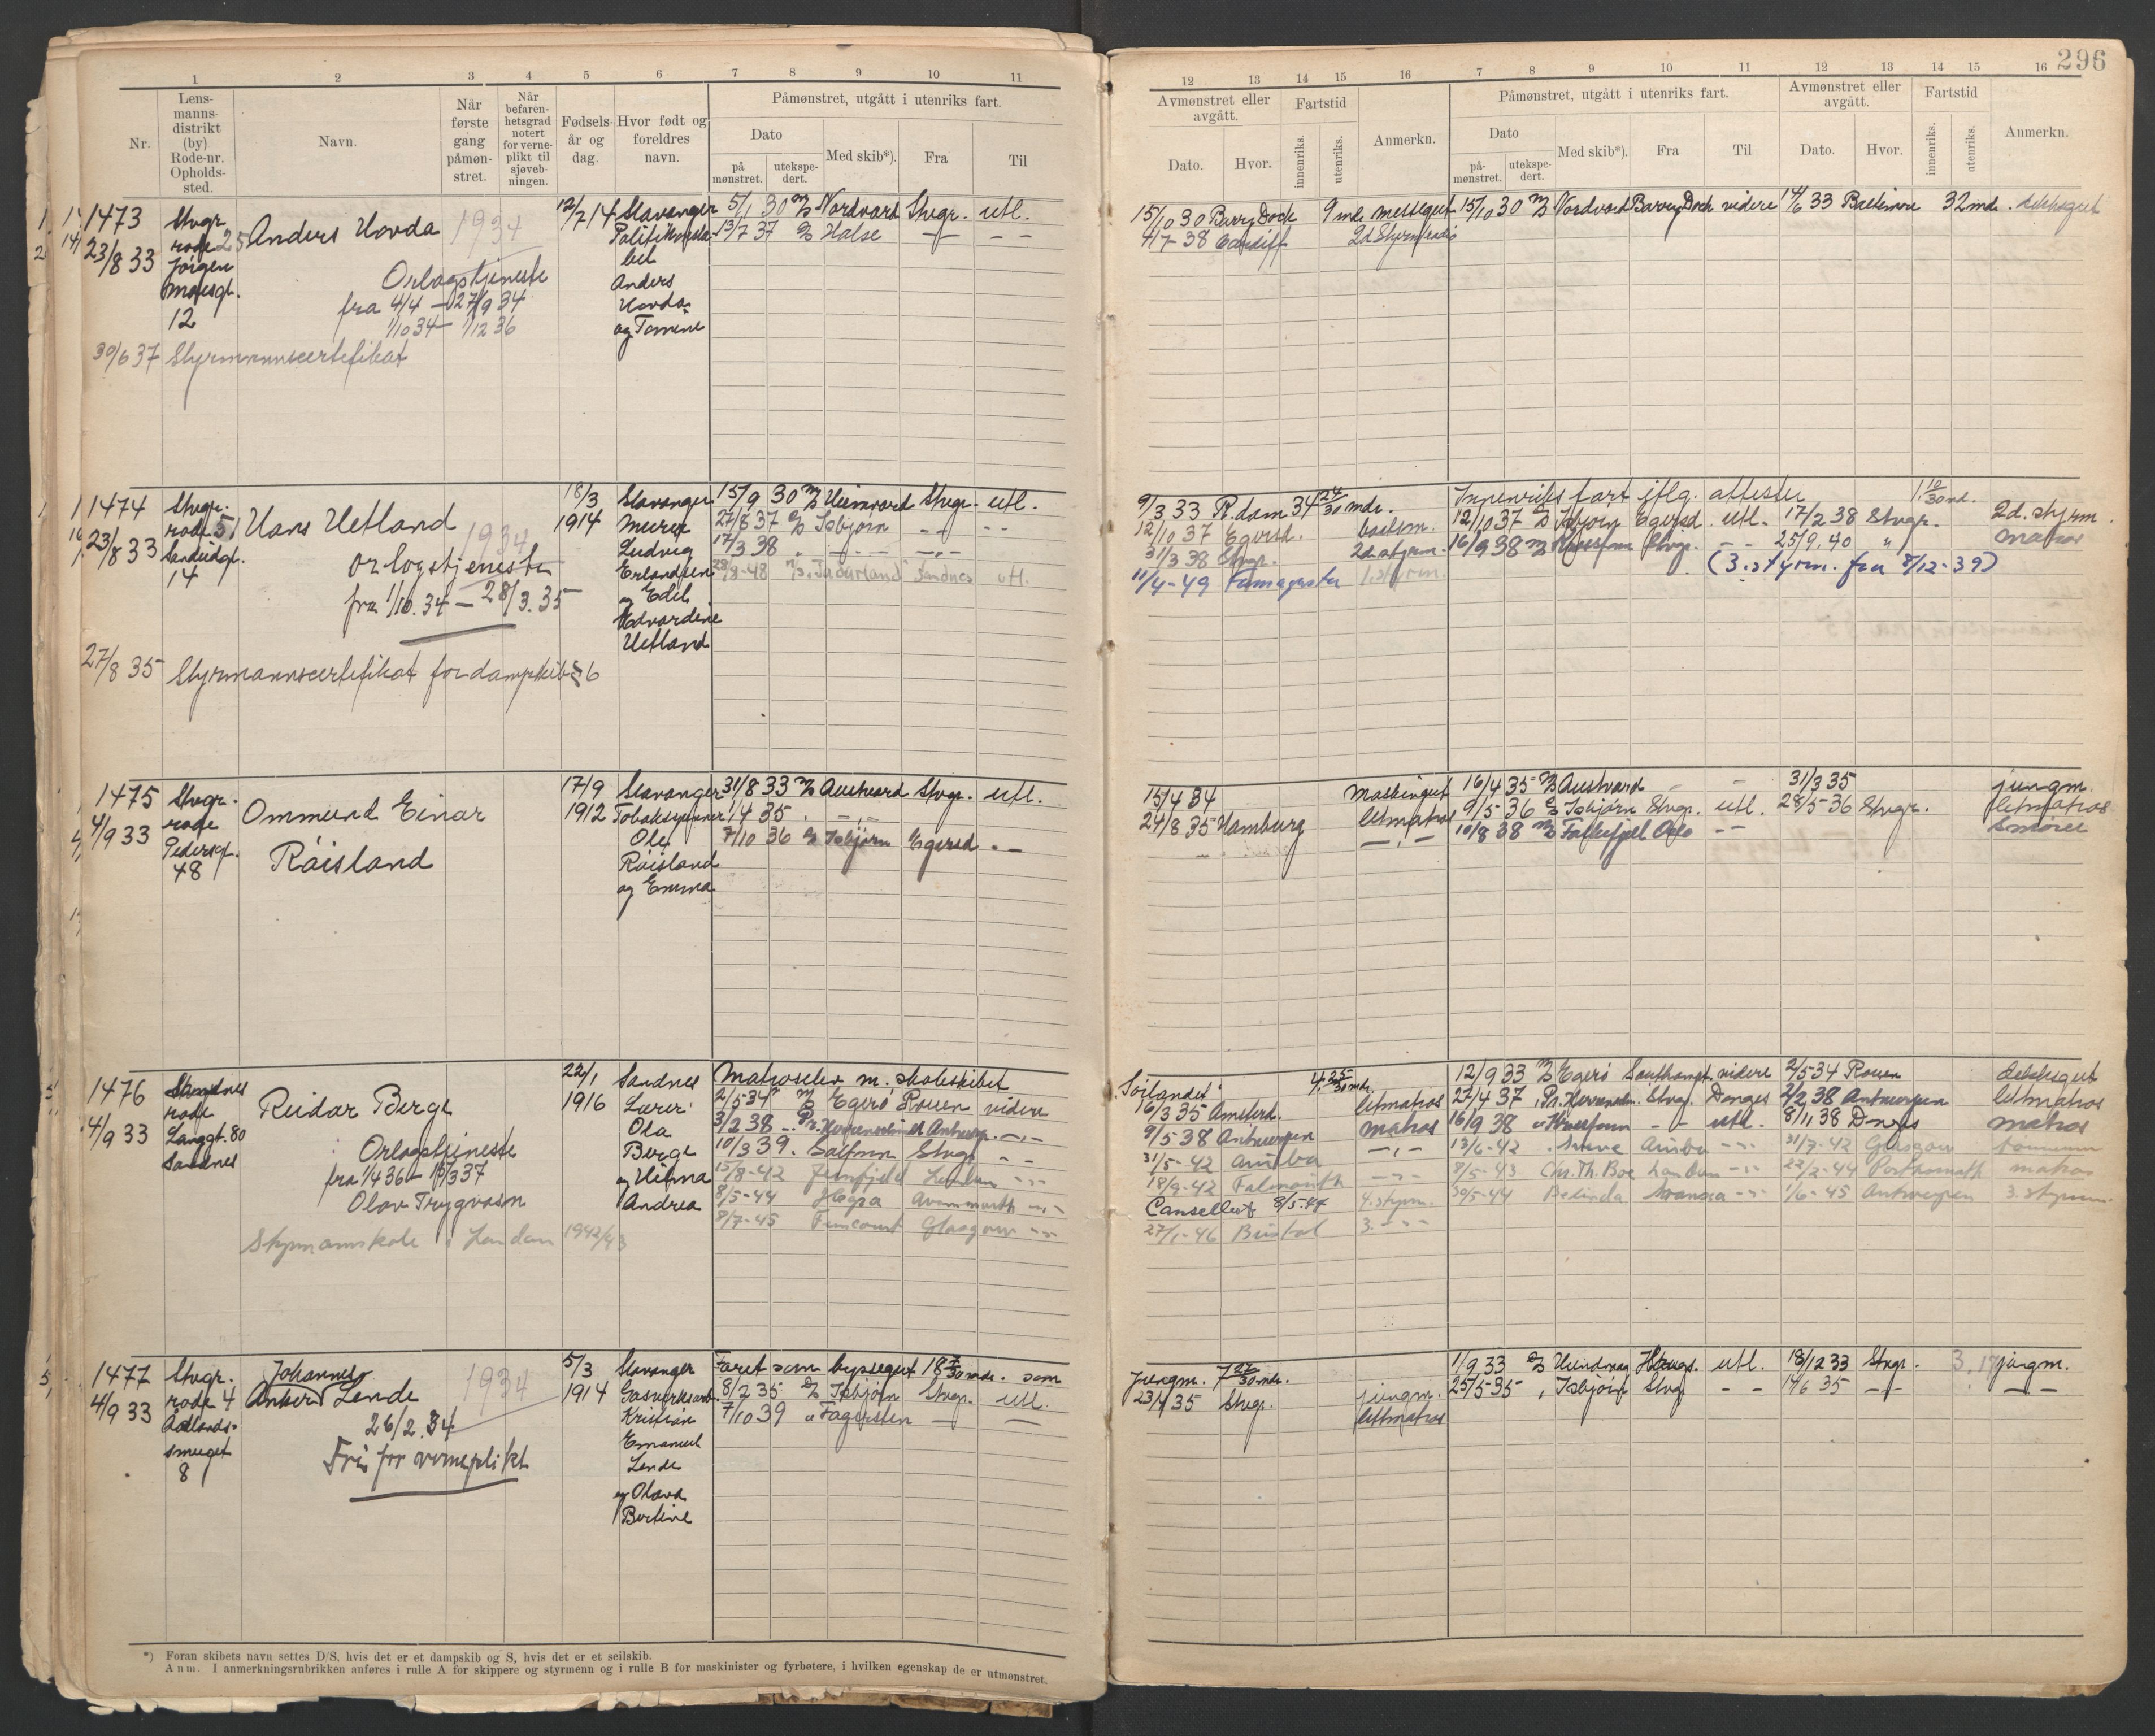 296
1 2 3 4 5 6 7 8 9 10 11
Nr.
Lens-
manns-
distrikt
(by)
Rode-nr.
Opholds-
sted.
Navn.
Når
første
gang
påmøn-
stret.
Når
befaren-
hetsgrad
notert
for verne-
plikt til
sjøveb-
ningen.
Fødsels-
år og
dag.
Hvor født og
foreldres
navn.
Påmønstret, utgått i utenriks fart.
Dato
på
mønstret.
utekspe-
dert.
Med skib*).
Fra
Til
12 13 14 15 16 7 8 9 10 11 12 13 14 15 16
Avmønstret eller
avgått.
Fartstid
Dato.
Hvor.
innenriks.
utenriks.
Anmerkn.
Påmønstret, utgått i utenriks fart.
Dato
på-
mønstret.
utekspe-
dert.
Med skib*).
Fra
Til
Avmønstret eller
avgått.
Dato.
Hvor.
Fartstid
innenriks.
utenriks.
Anmerkn.
1473
23/8 33
Stvgr.
rode 25
Jørgen
Moesgt.
12
Anders Hovda 1934
Orlogstjeneste
fra 4/4 - 27/9 34
1/10 34 - 1/12 36
30/6 37 Styrmannscertifikat
12/7 14 Stavanger
Anders
Hovda
og Tomine
5/1 30 M/S Nordvard Stvgr. utl.
13/7 37 D/S Halse — – –
15/10 30 Barry Dock 9 mdr. messegut 15/10 30 M/S Nordvard Barry Dock videre 14/6 33 Baltimore 32 md. dekksgut
4/7-38 Cardiff
1474
23/8 33
Stvgr.
rode 5
Sandeidgt.
14
Hans Hetland 1934
orlogstjeneste
fra 1/10.34 - 28/3.35
27/8 35 Styrmannscertifikat for dampskib
18/3
1914
Stavanger
Murer
Ludvig
Erlandsen
og Edel
Edvardine
Hetland
15/9 30 M/S Heimvard Stvgr. utl.
27/8 37 D/S Isbjørn – – – –
17/3 38 „ — „ — — „ —
28/8-48 M/S Jadarland Sandnes utl.
9/3 33 R.dam 34 24/30 mdr. Innenriks fart iflg. attester 1 10/30 md.
12/10 37 Egersd. 12/10 37 D/S Isbjørn Egersd. utl. 17/2 38 Stvgr. 2d. styrm.
31/3 38 Stvgr. 2d styrm. 16/9 38 M/S Kvitfonn Stvgr. – – 25/9.40 „ Matros
11/4-49 Famagusta 1. styrm. (3. styrm. fra 8/12-39)
1475
4/9 33
Stvgr.
rode
Pedersgt.
48
Ommund Einar
Røisland
17/9
1912
Stavanger
Ole
Røisland
og Emma
31/8 33 M/S Austvard Stvgr. utl.
1/4 35 „ — „ —
7/10 36 D/S Isbjørn Egersd – –
15/4 34 Maskingut 16/4 35 M/S Austvard – – 31/3 35 jungm.
24/8 35 Hamburg letmatros 9/5 36 D/S Isbjørn Stvgr. utl. 28/5-36 Stvgr. letmatros
— „ — 10/8 38 M/S Falkefjell Oslo – – Smører
1476
4/9 33
Sandnes
rode
Langgt. 80
Sandnes
Reidar Berge
Orlogstjeneste
fra 1/4 36 - 15/3 37
Olav Trygvason
Styrmannskole i London 1942/43
22/1
1916
Sandnes
Lærer
Ola
Berge
og Helma
Andrea
Matroselev m. skoleskibet
2/5-34 M/S Egerø Rouen videre
3/2 38 Antwerp. — „ —
10/3 39 . Solfonn Stvgr. – –
15/8-42
8/5-44 Hegra Avonmouth
8/7-45 Glasgow
Sørlandet 4 25/30 mdr. 12/9 33 M/S Egerø Southampt. videre 2/5-34 Rouen dekksgut
16/3 35 Amsterd. letmatros 27/4 37 Stvgr. 2/2 38 Antwerpen letmatros
9/5-38 Antwerpen matros 16/9 38 „ Kvitfonn – – utl. 8/1 38 matros
31/5-42 Aruba — „ — 13/6-42 Aruba 31/7-42 Glasgow
18/9-42 Falmouth 8/5-43 Chr. Th. Boe London 22/2-44 Portsmouth matros
Cansellert 8/5-44 4. styrm. 30/5-44 Belinda Swansea 1/6-45 Antwerpen 3. styrm.
27/1-46 Bristol 3.
1477
4/9 33
Stvgr.
rode 4
Ådlands-
smuget
8
Johannes
Anker Lende 1934
26/2.34
Fri for verneplikt
5/3
1914
Stavanger
Gasverksarb.
Kristian
Emanuel
Lende
og Olava
Bertine
Faret som byssegut 18 7/30 mdr. som
8/2 35 D/S Isbjørn Stvgr. utl.
7/10 39 „ Fagersten — —
jungm. 7 27/30 mdr. 1/9 33 D/S Haugs. utl. 18/12 33 Stvgr. jungm.
23/4 35 Stvgr. jungm. 25/5-35 „ Isbjørn Stvg – – 14/6 35 — —
letmatros
*) Foran skibets navn settes D/S. hvis det er et dampskib og S, hvis det er et seilskib.
Anm. I anmerkningsrubrikken anføres i rulle A for skippere og styrmenn og i rulle B for maskinister og fyrbøtere, i hvilken egenskap de er utmønstret.